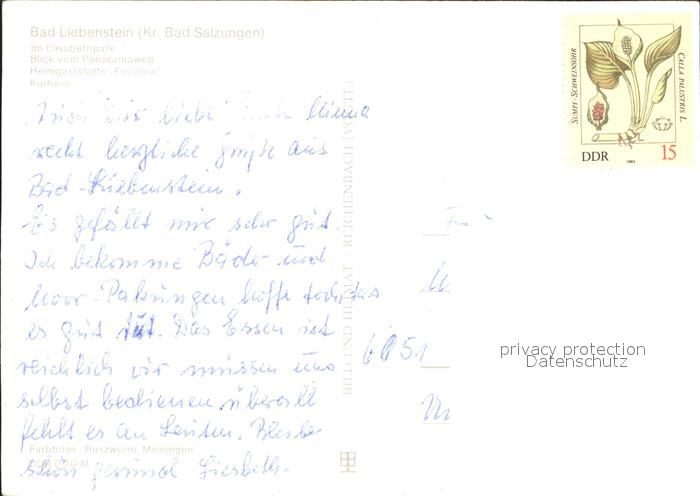 Bad Liebenstein (Kr. Bad Salzungen)
Im Elisabethpark
Blick vom Panoramaweg
Heimgaststätte „Feodora"
Kurhaus
liebe Minna
recht herzliche Grüße aus
Bad-Liebenstein.
Es gefällt mir sehr gut.
Ich bekomme Bäder und
Moor-Pakungen hoffe doch das
es gut tut. Das Essen ist
reichlich wir müssen uns
selbst bedienen, überall
fehlt es an Leuten. Bleibe
schön gesund Liesbeth.
Farbfotos: Ruszwurm, Meiningen
BILD UND HEIMAT · REICHENBACH (VOGTL)
SUMPF-SCHWEINSOHR
CALLA PALUSTRIS L.
DDR
1982
15
6051
privacy protection
Datenschutz